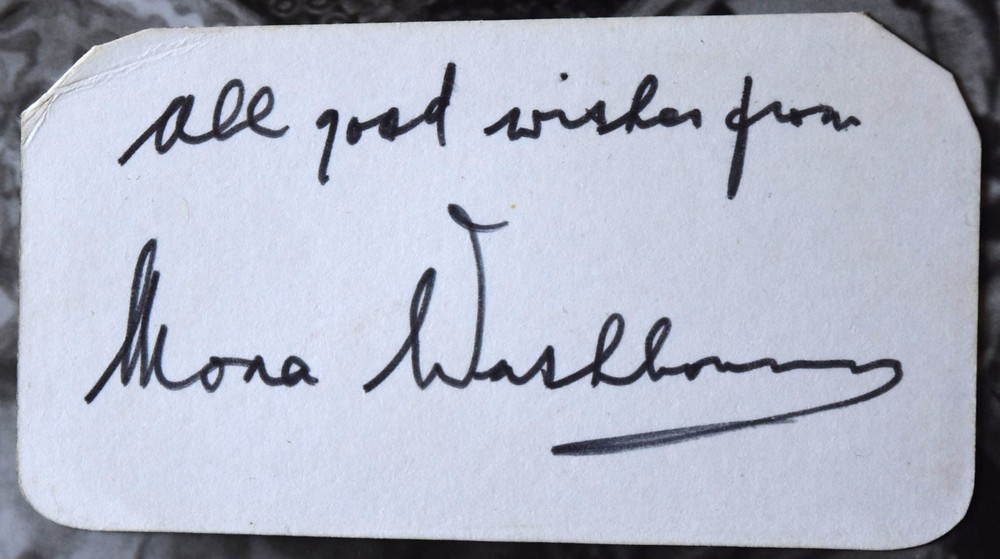 All good wishes from
Mona Washbourne